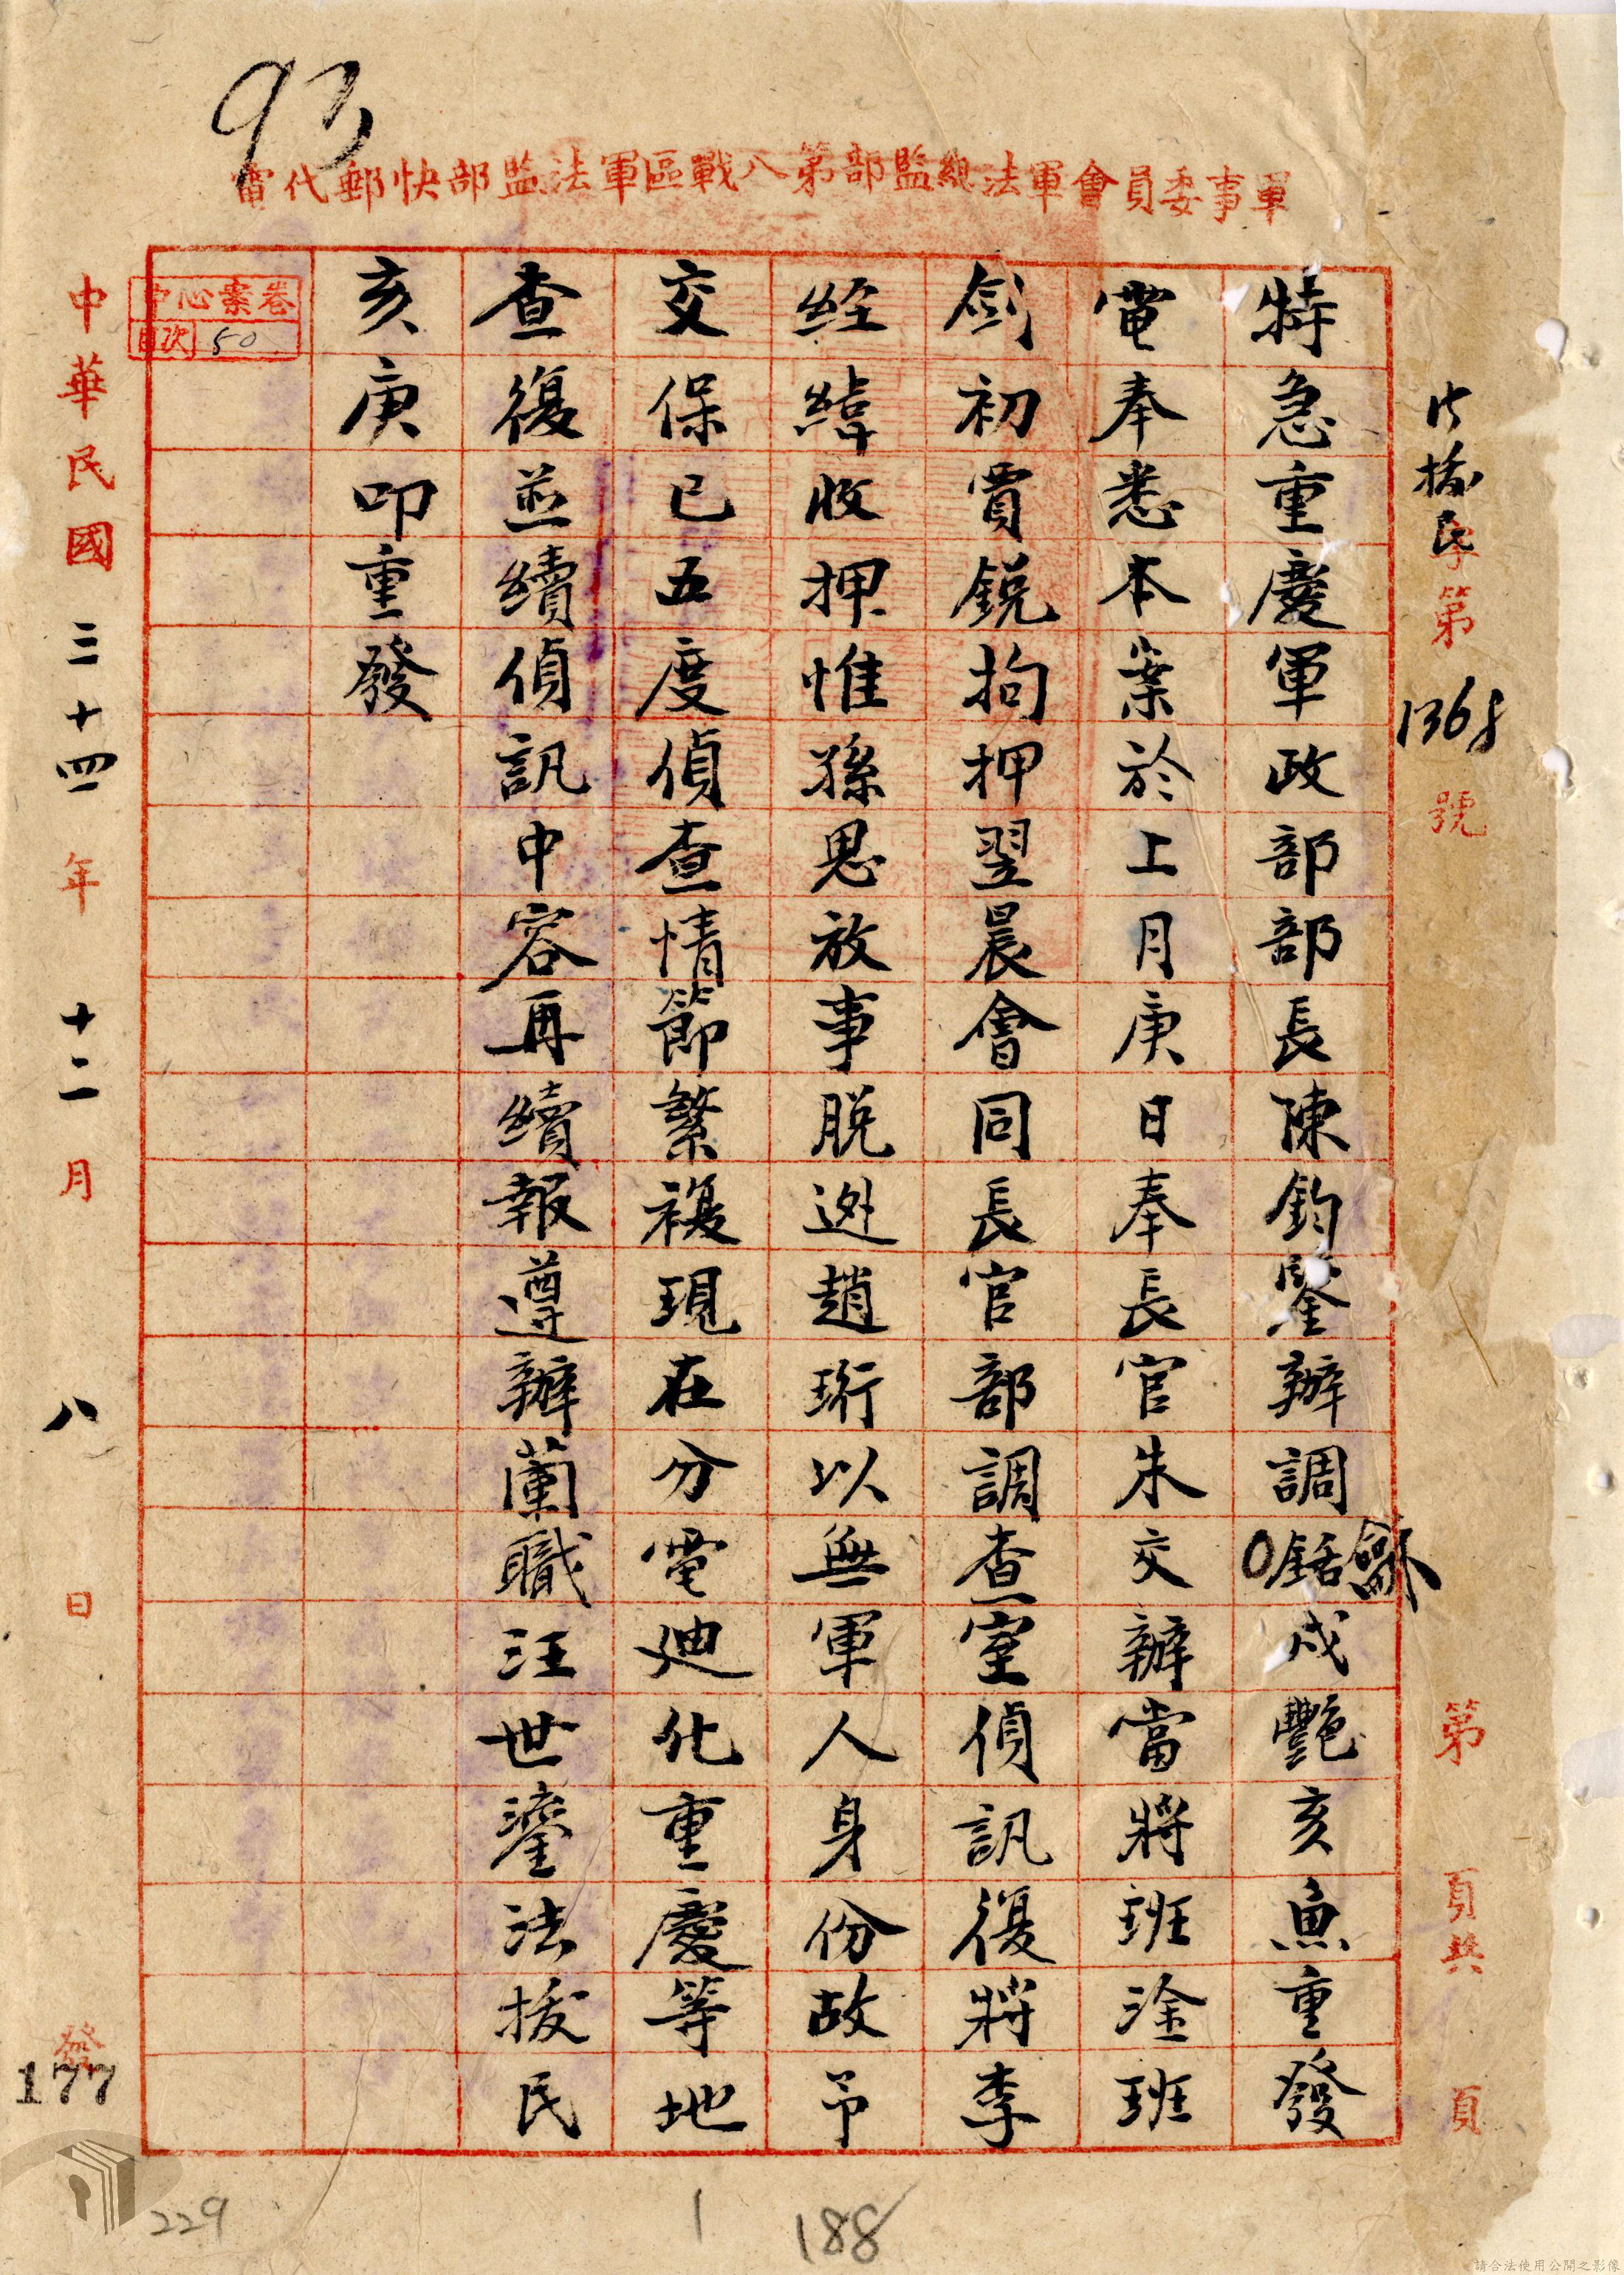 93
軍事委員會軍法總監部第八戰區軍法監部快郵代電
法揆民字第1365號
第 頁共 頁
特急重慶軍政部部長陳鈞鑒辦調龢銛戍艷亥魚重發
電奉悉本案於上月庚日奉長官朱交辦當將班淦班
劍初賈銳拘押翌晨會同長官部調查室偵訊復將李
經緯收押惟孫思放事脱逊趙珩以無軍人身份故予
交保已五度偵查情節繁複現在分電迪化重慶等地
查復並續偵訊中容再續報遵辦蘭職汪世鎏法揆民
亥庚叩重發
中心案卷
目次 50
中華民國三十四年十二月八日 發
177
229
1
188
請合法使用公開之影像